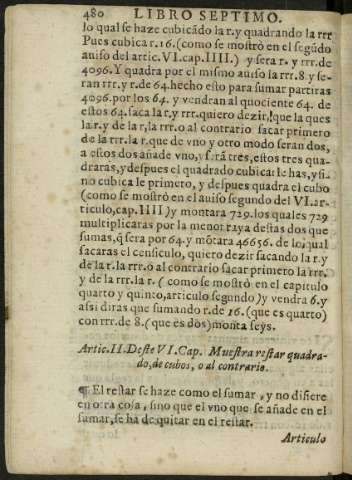 480 LIBRO SEPTIMO.
lo qual se haze cubicãdo la r. y quadrando la rrr
Pues cubica r. 16. (como se mostrò en el segũdo
auiso del artic. VI. cap. IIII.) y sera r. y rrr. de
4096. Y quadra por el mismo auiso la rrr. 8 y se-
ran rrr. y r. de 64. hecho esto para sumar partiras
4096. por los 64. y vendran al quociente 64. de
estos 64. saca la r. y rrr. quiero dezir, que la ques
la r. y de la r, la rrr. o al contrario sacar primero
de la rrr. la r. que de vno y otro modo seran dos,
a estos dos añade vno, y serã tres, estos tres qua-
draras, y despues el quadrado cubicar le has, y si
no cubica le primero, y despues quadra el cubo
(como se mostrò en el auiso segundo del VI. ar-
ticulo, cap. IIII) y montara 729. los quales 729
multiplicaras por la menor raya destas dos que
sumas, q̃ sera por 64. y mõtara 46656. de lo qual
sacaras el censiculo, quiero dezir sacando la r. y
de la r. la rrr. o al contrario sacar primero la rrr.
y de la rrr. la r. (como se mostrò en el capitulo
quarto y quinto, articulo segundo) y vendra 6. y
assi diras que sumando r. de 16. (que es quatro)
con rrr. de 8. (que es dos) monta seys.
Artic. II. Deste VI. Cap. Muestra restar quadra-
do, de cubos, o al contrario.
¶ El restar se haze como el sumar, y no difiere
en otra cosa, sino que el vno que se añade en el
sumar, se ha de quitar en el restar.
Articulo